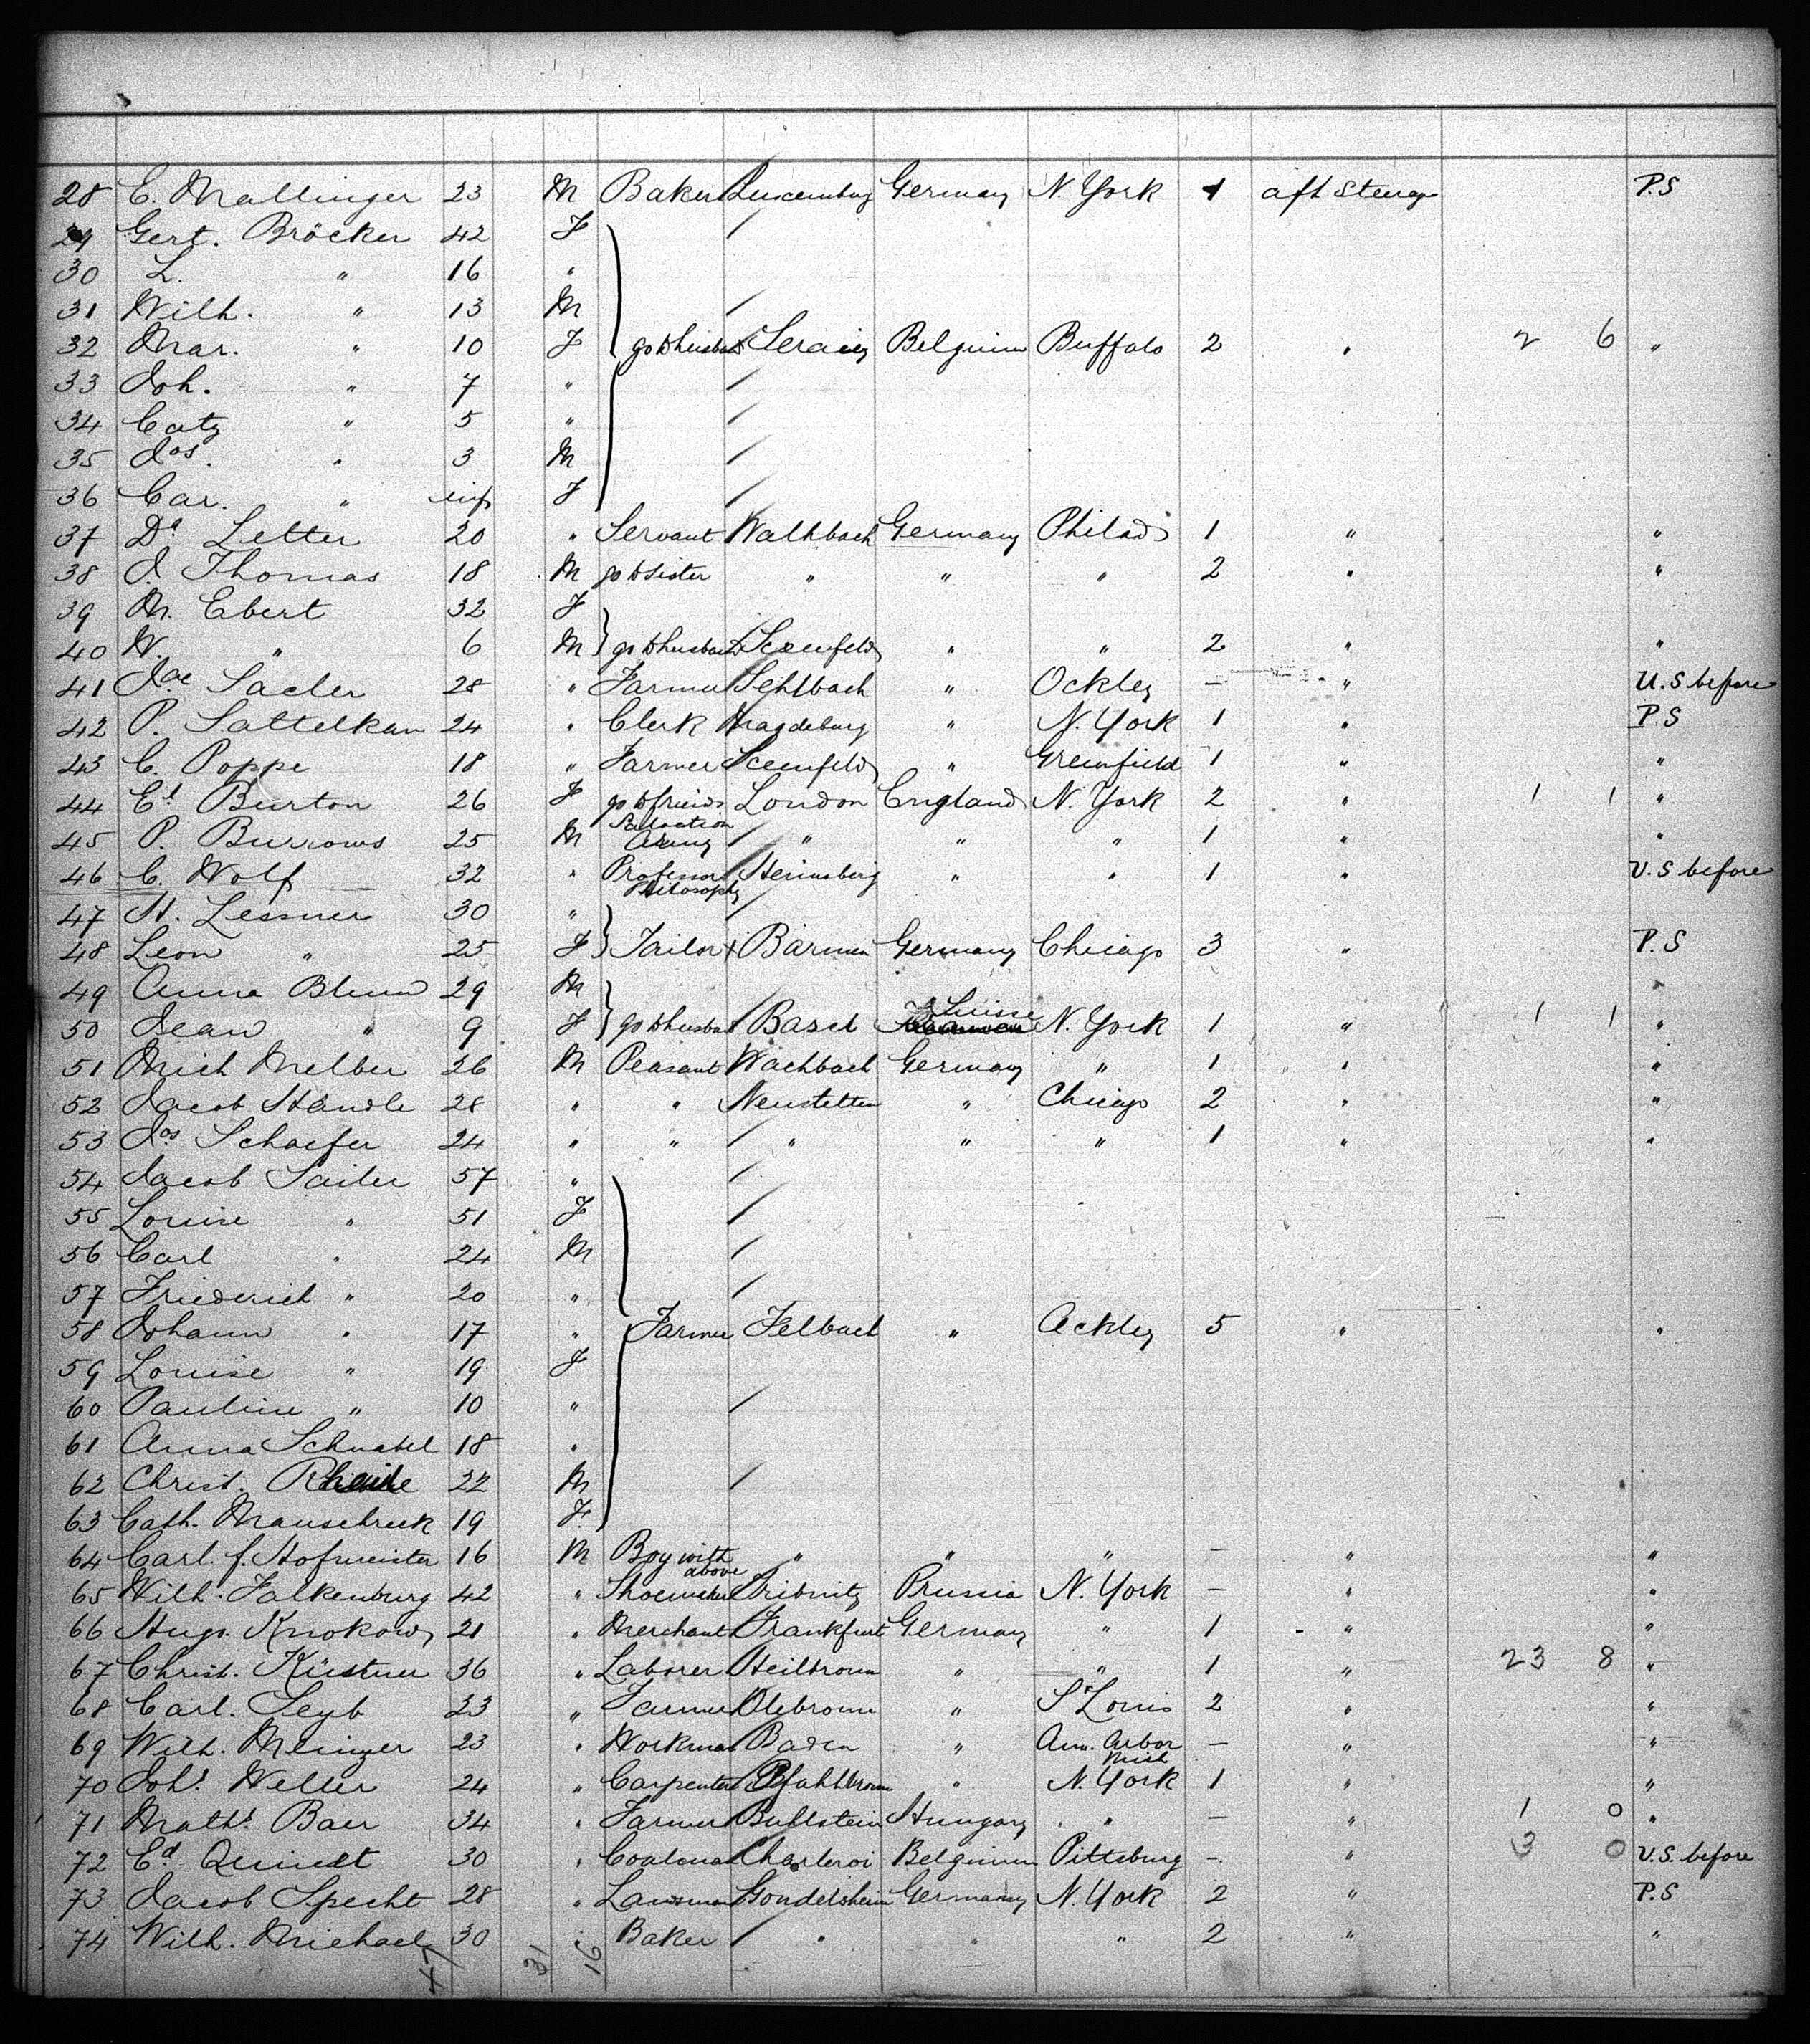 28 E. Mallinger 23 M Baker Luxemburg Germany N. York 1 aft Steerage P.S
29 Gert. Bröcker 42 F
30 L. " 16 "
31 Wilh. " 13 M
32 Mar. " 10 F go to husband Seraing Belgium Buffalo 2 " 2 6 "
33 Joh. " 7 "
34 Catz " 5 "
35 Jos. " 3 M
36 Car. " inf F
37 Da Letter 20 " Servant Walhbach Germany Philad 1 " "
38 J. Thomas 18 M go to Sister " " " 2 " "
39 M. Ebert 32 F
40 W. " 6 M go to husband " " 2 " "
41 Jac Sacler 28 " Farmer Sehlbach " Ockley - " U.S before
42 P. Sattelkau 24 " Clerk Magdeburg " N. York 1 " P.S
43 C. Poppe 18 " Farmer " Greenfield 1 " "
44 Ed Burton 26 F go to friends London England N. York 2 " 1 1 "
45 P. Burrows 25 M Salvation Army " " " 1 " "
46 C. Wolf 32 " Professor Philosophy Heinsberg " " 1 " U.S before
47 H. Lessner 30 "
48 Leon " 25 F Tailor Barmen Germany Chicago 3 " P.S
49 Anna Blum 29 M "
50 Jean " 9 F go to husband Basel Suisse N. York 1 " 1 1 "
51 Mich Melber 26 M Peasant Wachbach Germany " 1 " "
52 Jacob Händle 28 " " Neustetten " Chicago 2 " "
53 Jos Schaefer 24 " " " " " 1 " "
54 Jacob Sailer 57 "
55 Louise " 51 F
56 Carl " 24 M
57 Friederich " 20 "
58 Johann " 17 " Farmer Felbach " Ackley 5 " "
59 Louise " 19 F
60 Pauline " 10 "
61 Anna Schnabel 18 "
62 Christ. 22 M
63 Cath. Mauschreck 19 F.
64 Carl. f. Hofmeister 16 M Boy with above " " " - " "
65 Wilh. Falkenburg 42 " Shoemaker Tribnitz Prussia N. York - " "
66 Hugo Knokow 21 " Merchant Frankfurt Germany " 1 " "
67 Christ. Küstner 36 " Laborer Heilbronn " " 1 " 23 8 "
68 Carl. Seyb 23 " Farmer Olebronn " St Louis 2 " "
69 Wilh. Meinzer 23 " Workman Baden " Ann. Arbor Mich - " "
70 Johs. Weller 24 " Carpenter Pfahlbronn " N. York 1 " "
71 Maths. Baer 34 " Farmer Bublstein Hungary " - " 1 0 "
72 Ed Quinet 30 " Charleroi Belgium Pittsburg - " 3 0 U.S. before
73 Jacob Specht 28 " Landsman Gondelsheim Germany N. York 2 " P.S
74 Wilh. Michael 30 " Baker " " " 2 " "
47 31 16